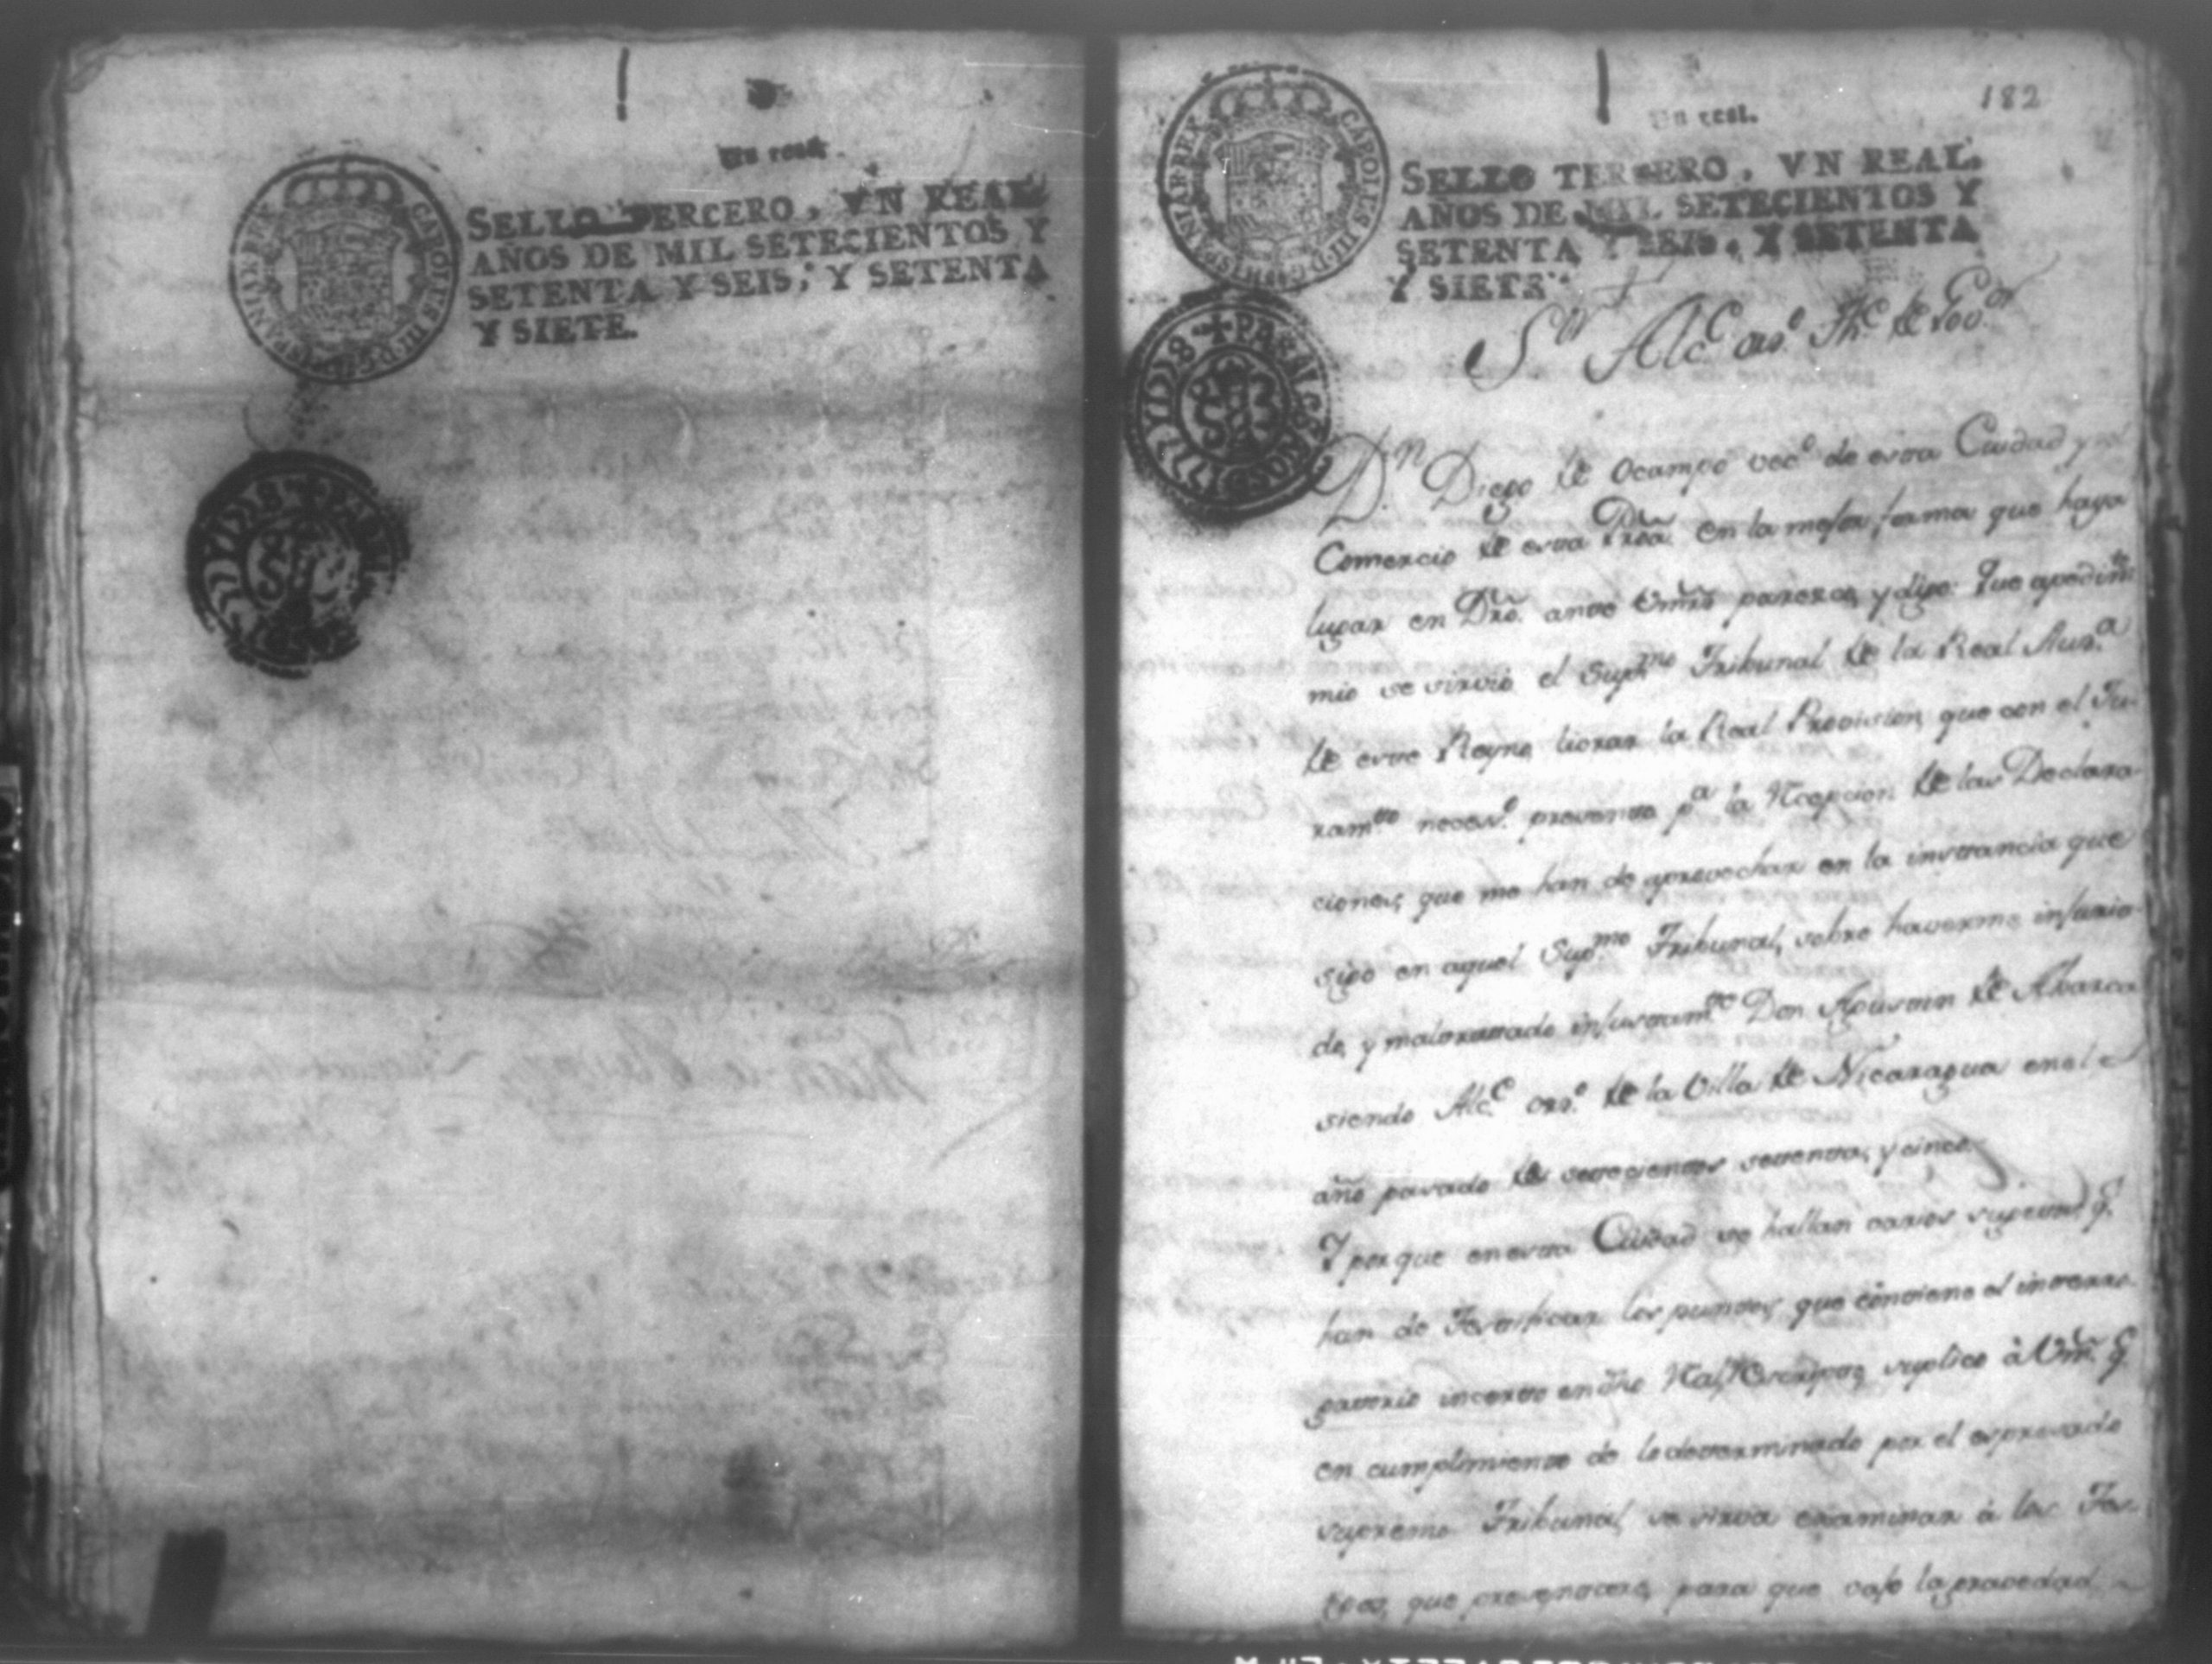 Un real.
SELLO TERCERO, VN REAL
AÑOS DE MIL SETECIENTOS Y
SETENTA Y SEIS, Y SETENTA
Y SIETE.
182
Un real.
SELLO TERCERO, VN REAL.
AÑOS DE MIL SETECIENTOS Y
SETENTA Y SEIS, Y SETENTA
Y SIETE.
CAROLUS III D G HISPANIAR REX
Sor Alce ordo The de Govor
Dn Diego de Ocampo veco de esta Ciudad y del
Comercio de esta Proa en la mejor forma que haya
lugar en Dro. ante Vmrs parezco, y digo: Que a pedimto
mio se sirvió el Supmo Tribunal de la Real Auda
de este Reyno librar la Real Provision, que con el Ju-
ramto neceso presento pa la Recepcion de las Declara-
ciones, que me han de aprovechar en la instancia que
sigo en aquel Supmo Tribunal, sobre haverme injuria-
do, y maltratado injustamte Don Agustin de Abarca
siendo Alce ordo de la Villa de Nicaragua en el
año pasado de setecientos setenta, y cinco.
Y porque en esta Ciudad se hallan varios sugetos, q.
han de Justificar los puntos, que contiene el interro-
gatorio incerto en dho Real Rescripto, suplico à Vm. q.
en cumplimiento de lo determinado por el expresado
supremo Tribunal, se sirva examinar à los Tes-
tigos, que presentare, para que vajo la gravedad